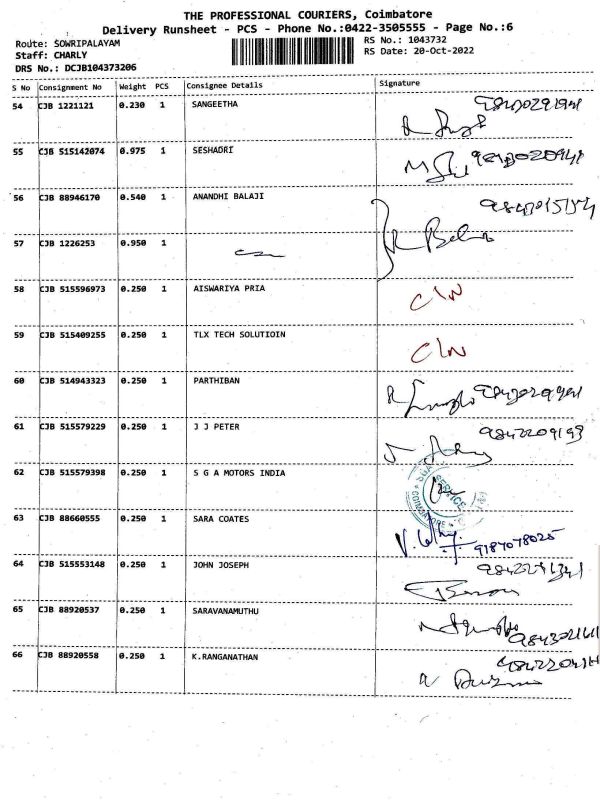 THE PROFESSIONAL COURIERS, Coimbatore
Delivery Runsheet - PCS - Phone No.:0422-3505555 - Page No.:6
Route: SOWRIPALAYAM
RS No.: 1043732
Staff: CHARLY
RS Date: 20-Oct-2022
DRS No.: DCJB104373206
S No Consignment No Weight PCS Consignee Details Signature
54 CJB 1221121 0.230 1 SANGEETHA
55 CJB 515142074 0.975 1 SESHADRI
56 CJB 88946170 0.540 1 ANANDHI BALAJI
57 CJB 1226253 0.950 1
58 CJB 515596973 0.250 1 AISWARIYA PRIA
59 CJB 515409255 0.250 1 TLX TECH SOLUTIOIN
60 CJB 514943323 0.250 1 PARTHIBAN
61 CJB 515579229 0.250 1 J J PETER 9842209193
62 CJB 515579398 0.250 1 S G A MOTORS INDIA
SERVICE
63 CJB 88660555 0.250 1 SARA COATES 9187078025
64 CJB 515553148 0.250 1 JOHN JOSEPH
65 CJB 88920537 0.250 1 SARAVANAMUTHU
66 CJB 88920558 0.250 1 K.RANGANATHAN